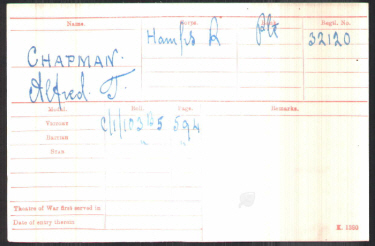 Name. Corps. Rank. Regtl. No.
CHAPMAN. Hamps R Pte 32120
Alfred. J.
Medal. Roll. Page. Remarks.
Victory C/1/103 B5 594
British " "
Star
Theatre of War first served in
Date of entry therein
K. 1380